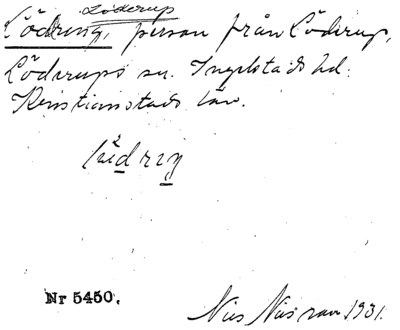 Löderup
Lödring, person från Löderup,
Löderups sn. Ingelstads hd.
Kristianstads län.
Nr 5450.
Nils Nilsson 1931.